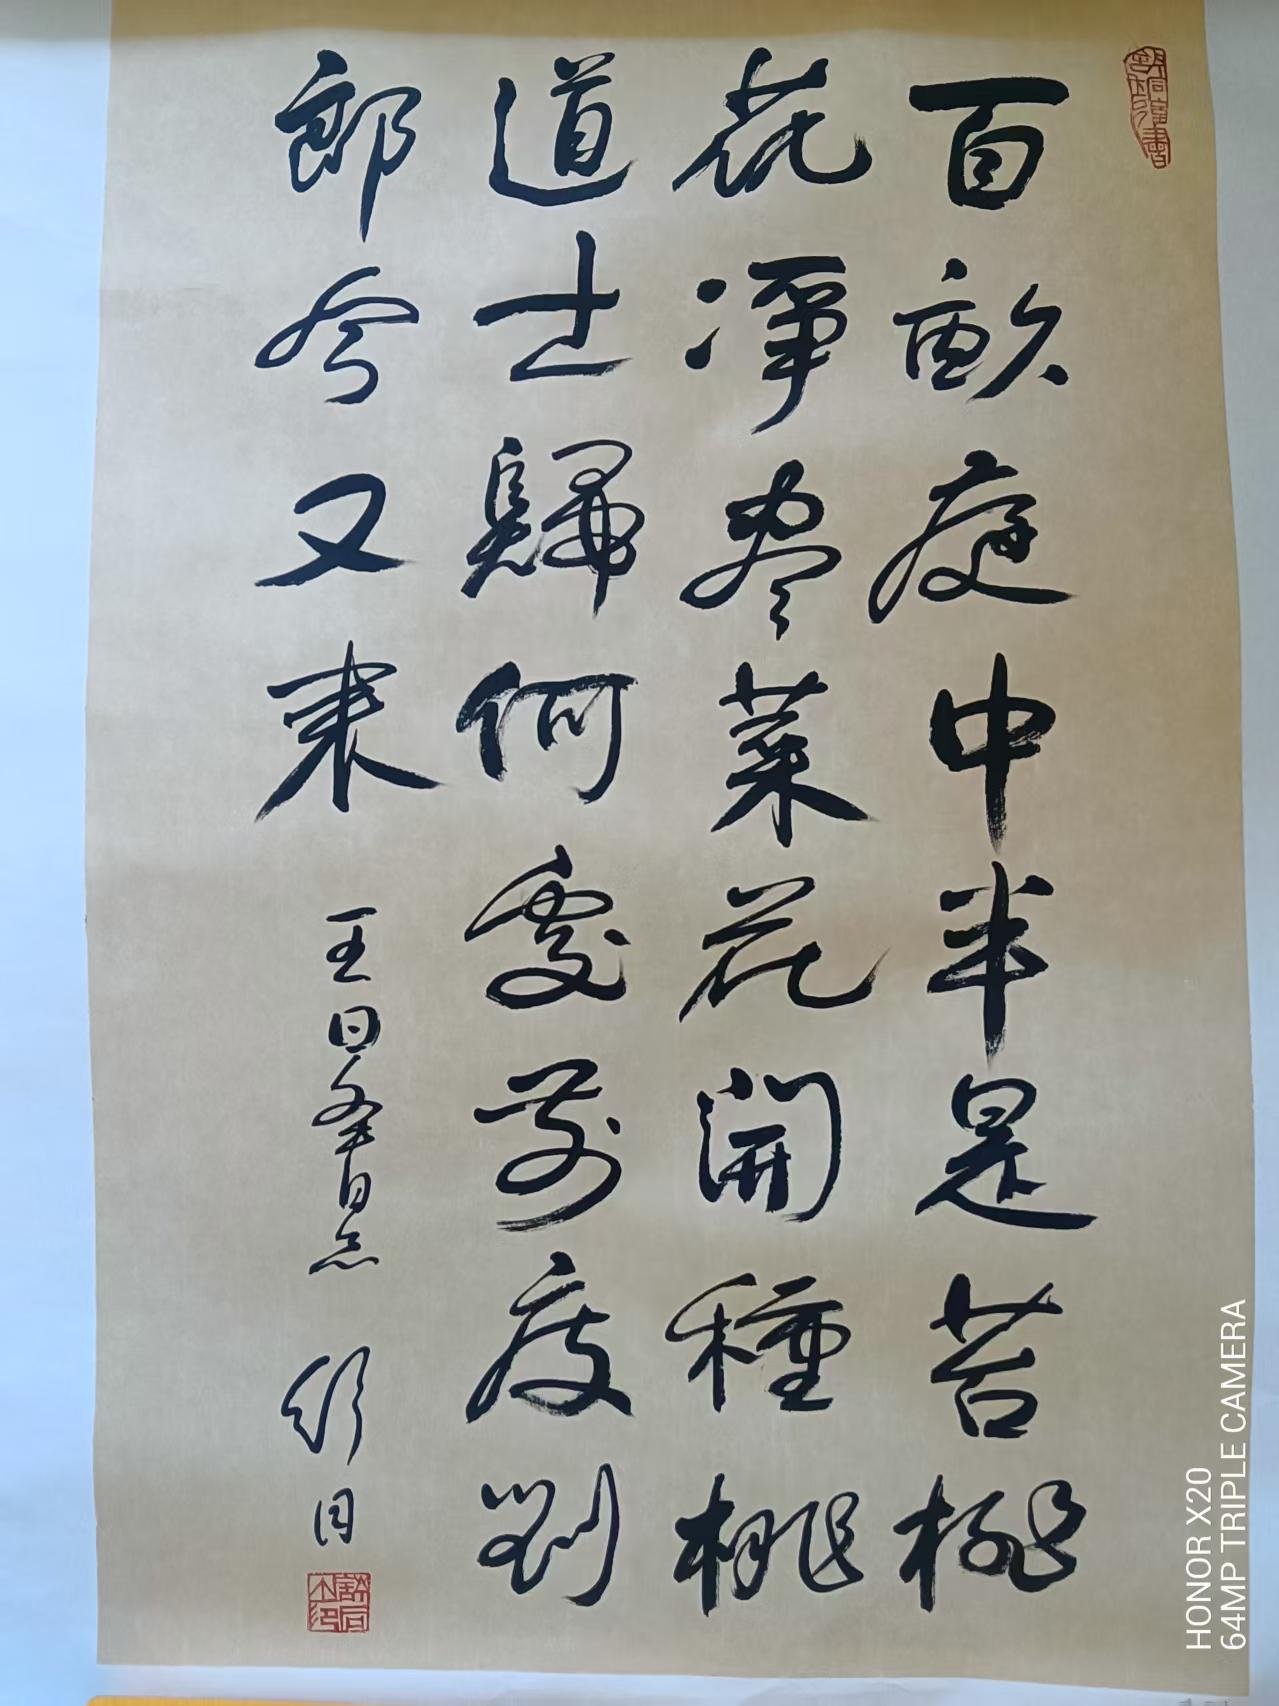 百畝庭中半是苔桃
花淨尽菜花開種桃
道士歸何處前度劉
郎今又来
舒同
HONOR X20
64MP TRIPLE CAMERA